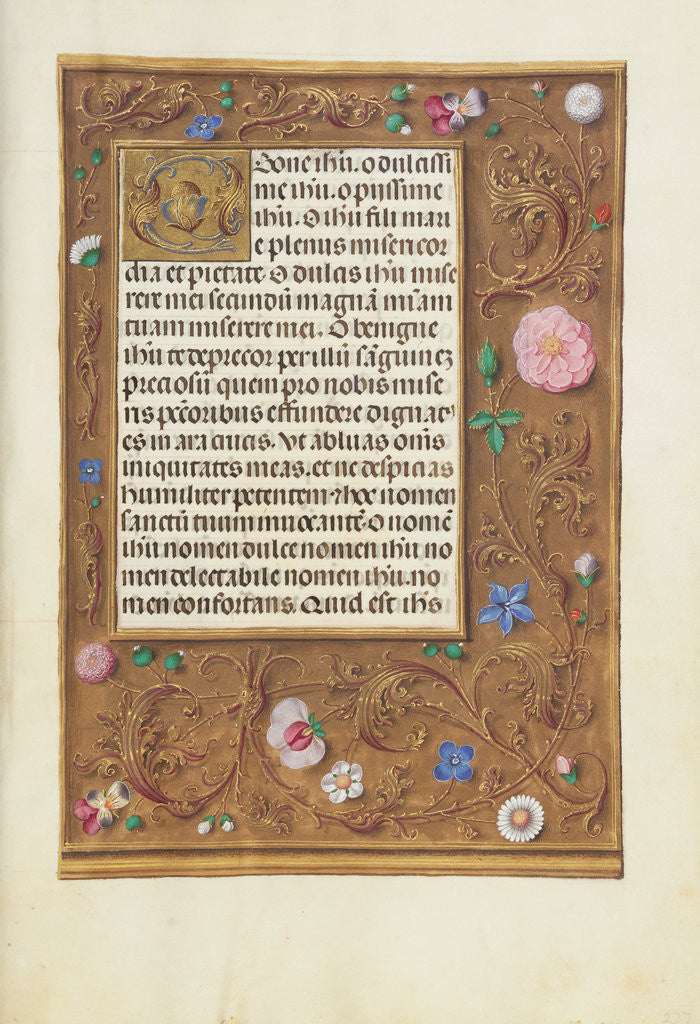 O Bone ihũ. o dulcissi
me ihũ. o piissime
ihũ. O ihũ fili mari
e plenus misericor
dia et pietate. O dulcis ihũ mise
rere mei secundũ magnã mĩam
tuam miserere mei. O benigne
ihũ te deprecor per illũ sãguinez
preciosũ quem pro nobis mise
ris pctoribus effundere dignat9
es in ara crucis. Vt abluas oms
iniquitates meas. et ne despicias
humiliter petentem ⁊ hoc nomen
sanctũ tuum inuocantẽ. O nomẽ
ihũ nomen dulce nomen ihũ no
men delectabile nomen ihũ. no
men confortans. Quid est ihs
237